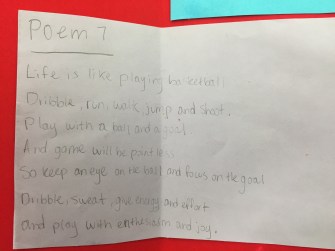 Poem 7
Life is like playing basketball
Dribble, run, walk, jump and shoot.
Play with a ball and a goal.
And game will be point less.
So keep an eye on the ball and focus on the goal
Dribble, sweat, give energy and effort
and play with enthusiasm and joy.